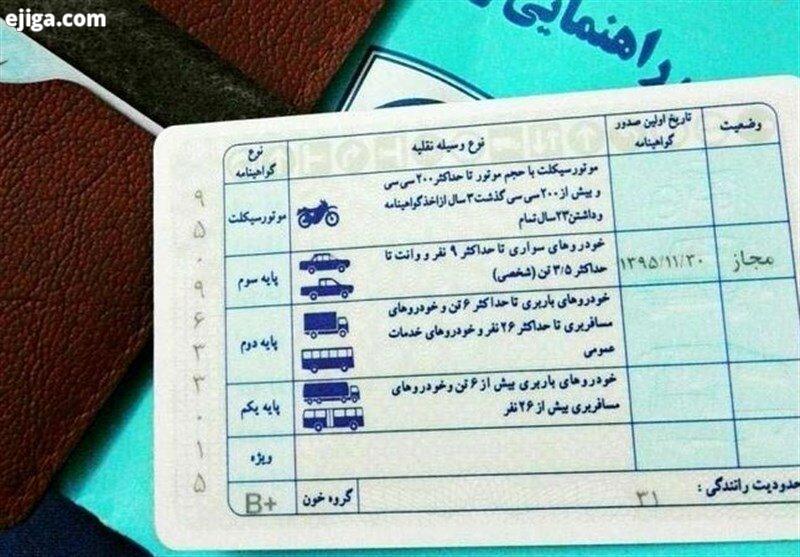 ejiga.com
راهنمایی
وضعیت
تاریخ اولین صدور
گواهینامه
نوع وسیله نقلیه
نوع
گواهینامه
موتورسیکلت با حجم موتور تا حداکثر ۲۰۰ سی سی
و بیش از ۲۰۰ سی سی گذشت ۳ سال از اخذ گواهینامه
و داشتن ۲۳ سال تمام
موتورسیکلت
مجاز
۱۳۹۵/۱۱/۳۰
خودروهای سواری تا حداکثر ۹ نفر و وانت تا
حداکثر ۳/۵ تن (شخصی)
پایه سوم
خودروهای باربری تا حداکثر ۶ تن و خودروهای
مسافربری تا حداکثر ۲۶ نفر و خودروهای خدمات
عمومی
پایه دوم
خودروهای باربری بیش از ۶ تن و خودروهای
مسافربری بیش از ۲۶ نفر
پایه یکم
ویژه
حدودیت رانندگی :
۳۱
گروه خون
B+
۹
۵
۰
۹
۶
۳
۳
۰
۱
۵